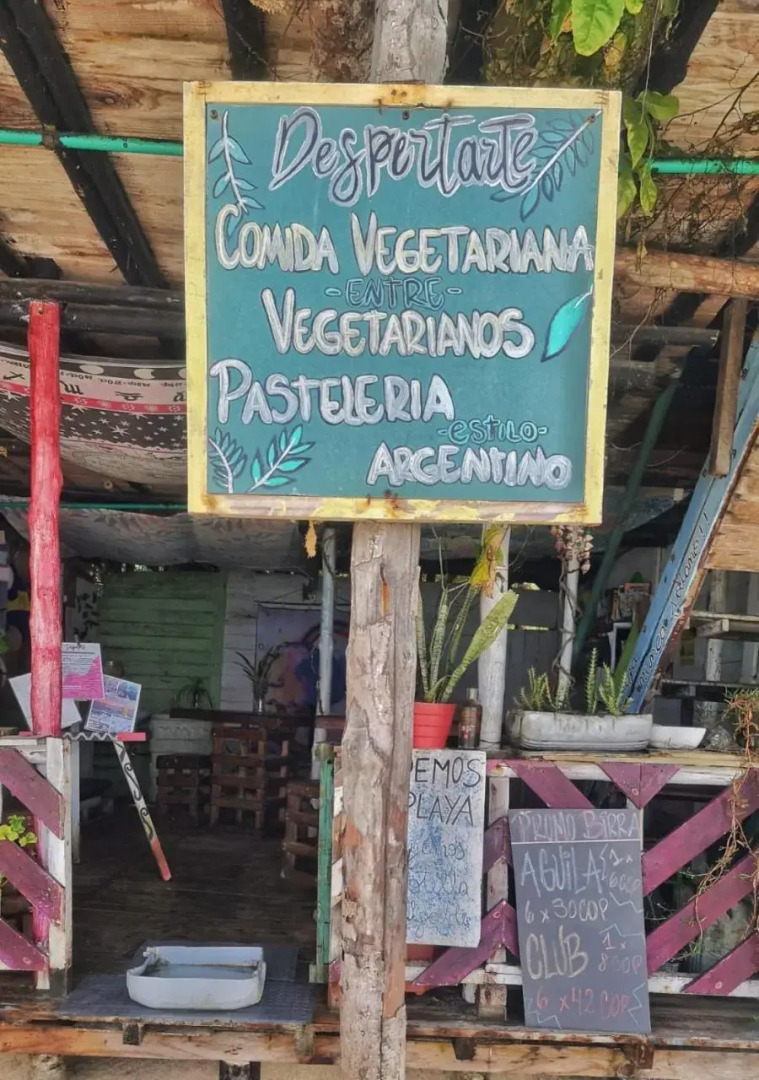 Despertarte
COMIDA VEGETARIANA
-ENTRE-
VEGETARIANOS
PASTELERIA
-estilo-
ARGENTINO
EMOS
PLAYA
PROMO BIRRA
AGUILA 1x
6 x 30COP
CLUB 1x
6 x 42 COP